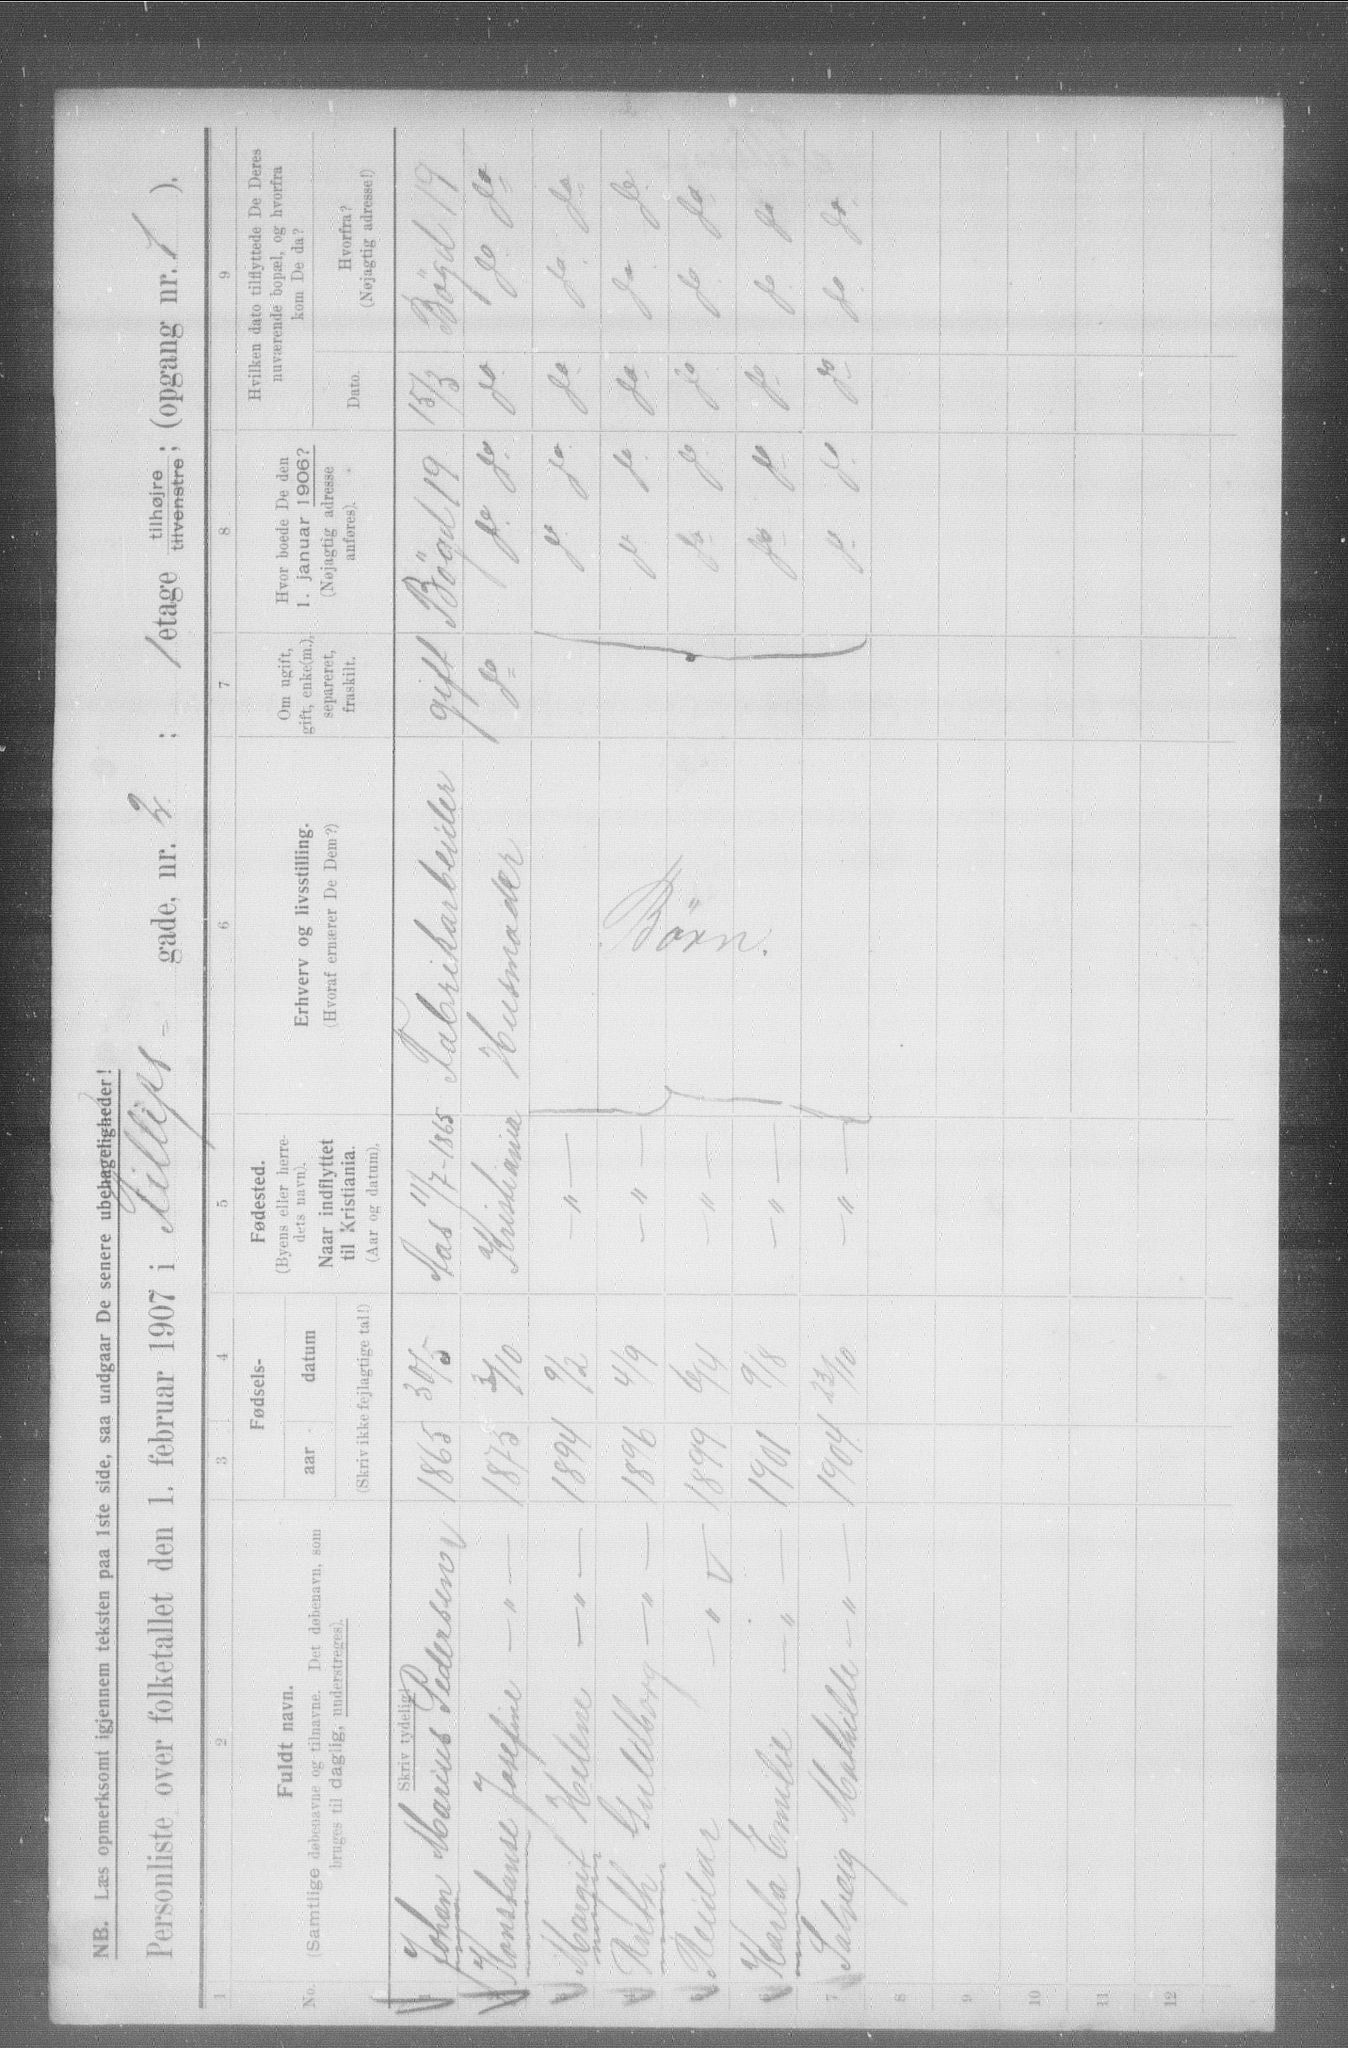 NB. Læs opmerksomt igjennem teksten paa 1ste side, saa undgaar De senere ubehageligheder!
Personliste over folketallet den 1. februar 1907 i Fillips- gade, nr. 2 ; 1 etage tilhøjre tilvenstre ; (opgang nr. 1 ).
1 2 3 4 5 6 7 8 9
No.
Fuldt navn.
(Samtlige døbenavne og tilnavne. Det døbenavn, som
bruges til daglig, understreges).
Skriv tydelig!
Fødsels-
aar datum
(Skriv ikke fejlagtige tal!)
Fødested.
(Byens eller herre-
dets navn).
Naar indflyttet
til Kristiania.
(Aar og datum).
Erhverv og livsstilling.
(Hvoraf ernærer De Dem?)
Om ugift,
gift, enke(m.),
separeret,
fraskilt.
Hvor boede De den
1. januar 1906?
(Nøjagtig adresse
anføres).
Hvilken dato tilflyttede De Deres
nuværende bopæl, og hvorfra
kom De da?
Dato.
Hvorfra?
(Nøjagtig adresse!)
1 Johan Marius Pedersen 1865 30/5 Aas 11/7-1865 Fabrikarbeider gift Bögd 19 15/3 Bögd 19
2 Konstanse Josefine —"— 1875 3/10 Kristiania Husmoder do do do do do do
3 Margit Helene —"— 1894 9/2 —"— do do do do do
4 Ruth Guldborg —"— 1896 4/9 —"— Börn. do do do do do
5 Reidar —"— 1899 6/4 —"— do do do do do
6 Karla Emilie —"— 1901 9/8 —"— do do do do do
7 Solveig Mathilde —"— 1904 23/10 —"— do do do do do
8
9
10
11
12